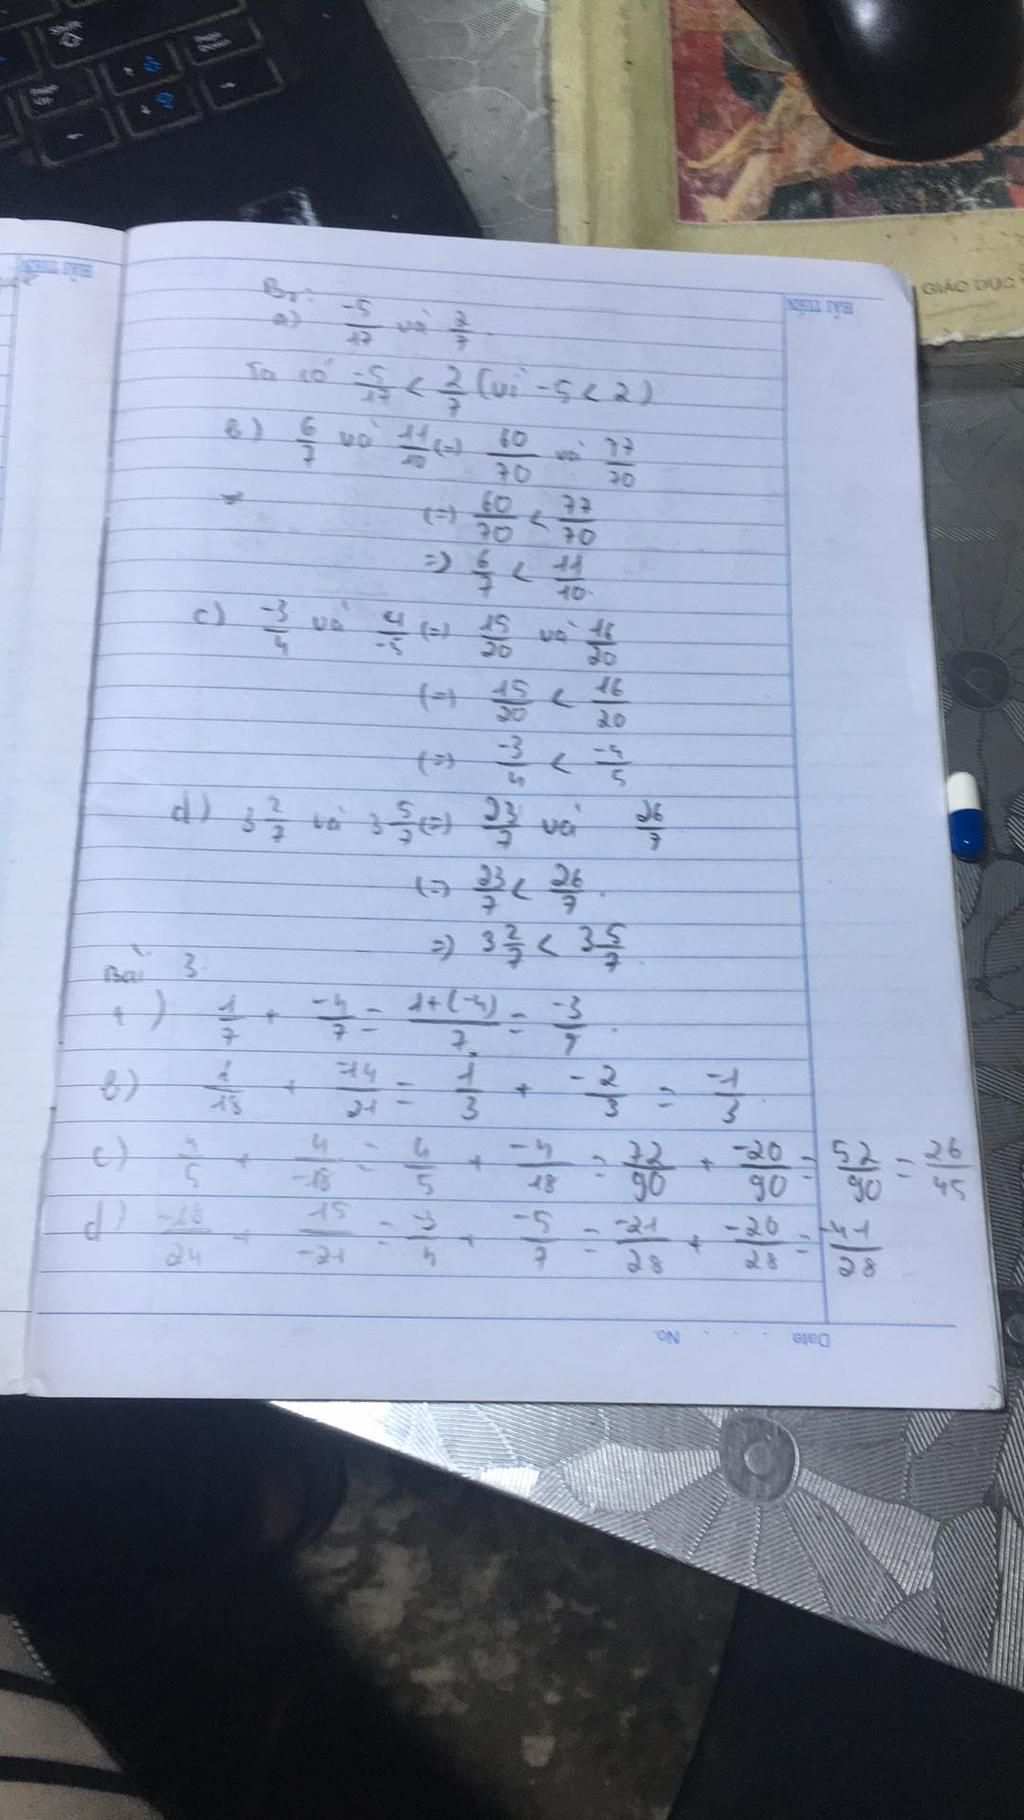 GIÁO DỤC
HẢI TIẾN
HẢI TIẾN
B2:
a) -5/17 và 2/7.
Ta có -5/17 < 2/7 (vì -5 < 2)
b) 6/7 và 11/10 (=) 60/70 và 77/70
(=) 60/70 < 77/70
=) 6/7 < 11/10.
c) -3/4 và 4/-5 (=) 15/20 và 16/20
(=) 15/20 < 16/20
(=) -3/4 < -4/5
d) 3 2/7 và 3 5/7 (=) 23/7 và 26/7
(=) 23/7 < 26/7.
=) 3 2/7 < 3 5/7.
Bài 3.
1/7 + -4/7 = 1+(-4)/7 = -3/7.
b) + -14/21 = 1/3 + -2/3 = -1/3.
c) 4/5 + 4/-18 = 4/5 + -4/18 = 72/90 + -20/90 = 52/90 = 26/45
d) -18/24 + 15/-21 = -3/4 + -5/7 = -21/28 + -20/28 = -41/28
Date No.